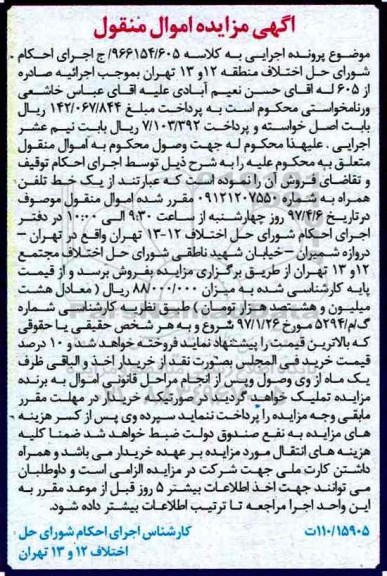 آگهی مزایده اموال منقول
موضوع پرونده اجرایی به کلاسه ۹۶۶۱۵۴/۶۰۵/ ج اجرای احکام
شورای حل اختلاف منطقه ۱۲و ۱۳ تهران بموجب اجرائیه صادره
از ۶۰۵ له آقای حسن نعیم آبادی علیه اقای عباس خاشعی
ورنامخواستی محکوم است به پرداخت مبلغ ۱۴۲/۰۶۷/۸۴۴ ریال
بابت اصل خواسته و پرداخت ۷/۱۰۳/۳۹۲ ریال بابت نیم عشر
اجرایی . علیهذا محکوم له جهت وصول محکوم به اموال منقول
متعلق به محکوم علیه را به شرح ذیل توسط اجرای احکام توقیف
و تقاضای فروش آن را نموده است که عبارتند از یک خط تلفن
همراه به شماره ۰۹۱۲۱۲۰۷۵۵۰ مقرر شده اموال منقول موصوف
درتاریخ ۹۷/۴/۶ روز چهارشنبه از ساعت ۹:۳۰ الی ۱۰:۰۰ در دفتر
اجرای احکام شورای حل اختلاف ۱۲-۱۳ تهران واقع در تهران –
دروازه شمیران – خیابان شهید ناطقی شورای حل اختلاف مجتمع
۱۲و ۱۳ تهران از طریق برگزاری مزایده بفروش برسد و از قیمت
پایه کارشناسی شده به میزان ۸۸/۰۰۰/۰۰۰ ریال ( معادل هشت
میلیون و هشتصد هزار تومان ) طبق نظریه کارشناسی شماره
گ/م/۵۲۹۴ مورخ ۹۷/۱/۲۶ شروع و به هر شخص حقیقی یا حقوقی
که بالاترین قیمت را پیشنهاد نماید فروخته خواهد شد و ۱۰ درصد
قیمت خرید فی المجلس بصورت نقد از خریدار اخذ و الباقی ظرف
یک ماه از وی وصول وپس از انجام مراحل قانونی اموال به برنده
مزایده تملیک خواهد گردید.درصورتیکه خریدار در مهلت مقرر
مابقی وجه مزایده را پرداخت ننماید سپرده وی پس از کسر هزینه
های مزایده به نفع صندوق دولت ضبط خواهد شد ضمنا کلیه
هزینه های انتقال مورد مزایده بر عهده خریدار می باشد و همراه
داشتن کارت ملی جهت شرکت در مزایده الزامی است و داوطلبان
می توانند جهت اخذ اطلاعات بیشتر ۵ روز قبل از موعد مقرر به
این واحد اجرا مراجعه تا ترتیب اطلاعات بیشتر داده شود.
۱۱۰/۱۵۹۰۵ت کارشناس اجرای احکام شورای حل
اختلاف ۱۲ و ۱۳ تهران